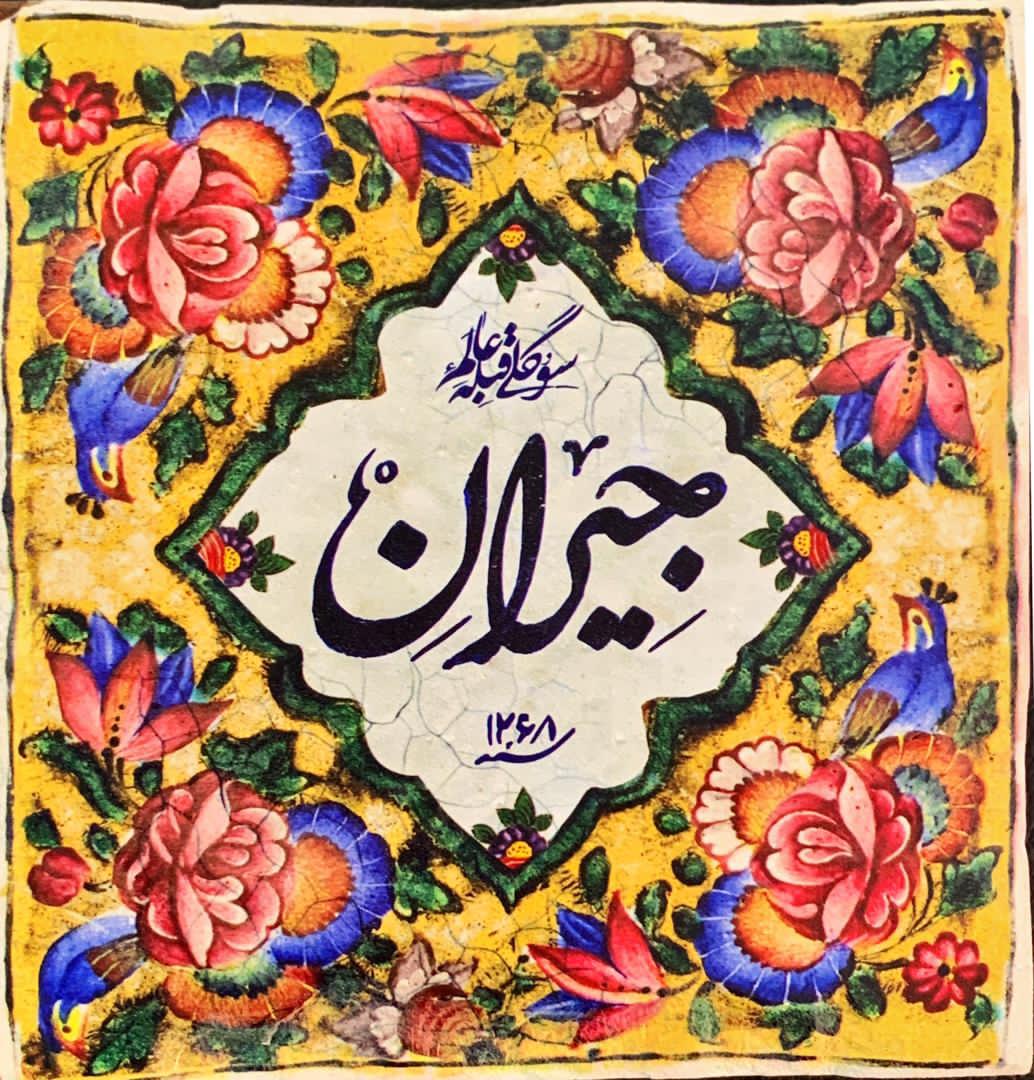 سوگلی قبله عالم
جیران
سنه ۱۲۶۸